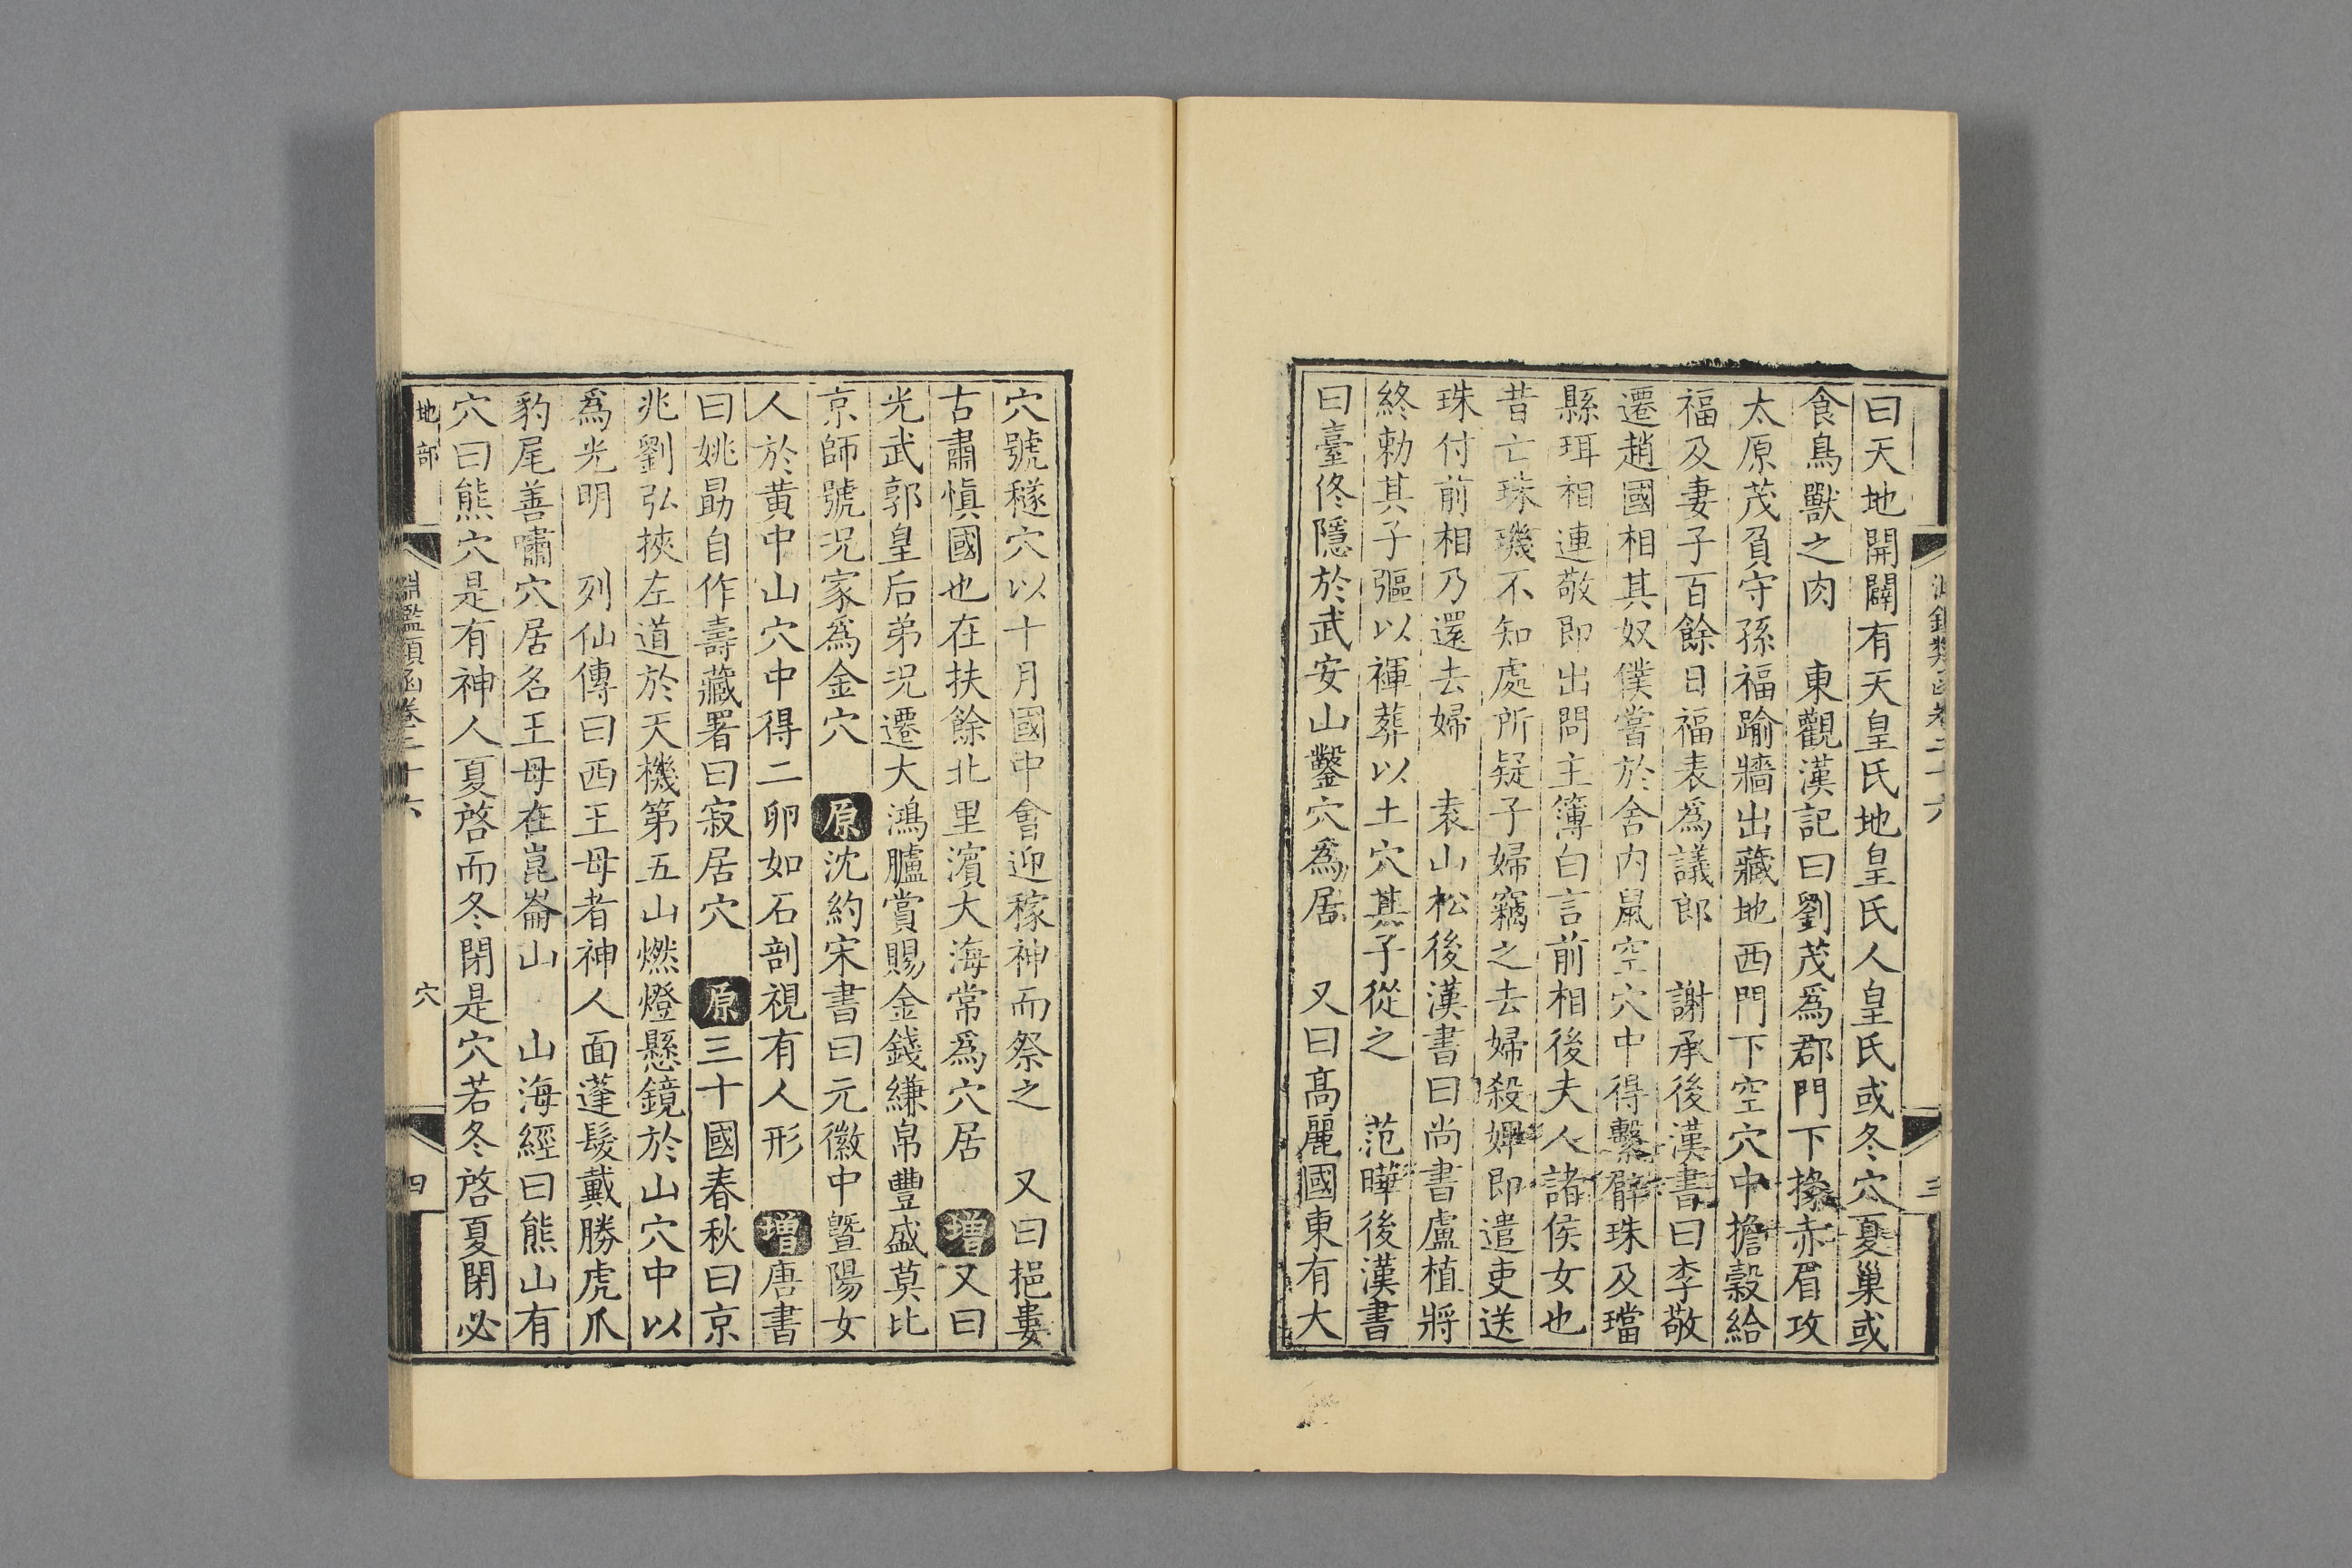 曰天地開闢有天皇氏地皇氏人皇氏或冬穴夏巢或
食鳥獸之肉　東觀漢記曰劉茂爲郡門下掾赤眉攻
太原茂負守孫福踰牆出藏地西門下空穴中擔穀給
福及妻子百餘日福表爲議郎　謝承後漢書曰李敬
遷趙國相其奴僕嘗於舍內鼠空穴中得繫臂珠及璫
縣珥相連敬即出問主簿白言前相後夫人諸侯女也
昔亡珠璣不知處所疑子婦竊之去婦殺婢即遣吏送
珠付前相乃還去婦　袁山松後漢書曰尚書盧植將
終勅其子彄以褌葬以土穴其子從之　范曄後漢書
曰臺佟隱於武安山鑿穴爲居　又曰高麗國東有大
淵鑑類函卷二十六
三
穴號穟穴以十月國中會迎稼神而祭之　又曰挹婁
古肅愼國也在扶餘北里濱大海常爲穴居　增又曰
光武郭皇后弟況遷大鴻臚賞賜金錢縑帛豐盛莫比
京師號況家爲金穴　原沈約宋書曰元徽中暨陽女
人於黄中山穴中得二卵如石剖視有人形　增唐書
曰姚勗自作壽藏署曰寂居穴　原三十國春秋曰京
兆劉弘挾左道於天機第五山燃燈懸鏡於山穴中以
爲光明　列仙傳曰西王母者神人面蓬髮戴勝虎爪
豹尾善嘯穴居名王母在崑崙山　山海經曰熊山有
穴曰熊穴是有神人夏啓而冬閉是穴若冬啓夏閉必
地部
淵鑑類函卷二十六
穴
四